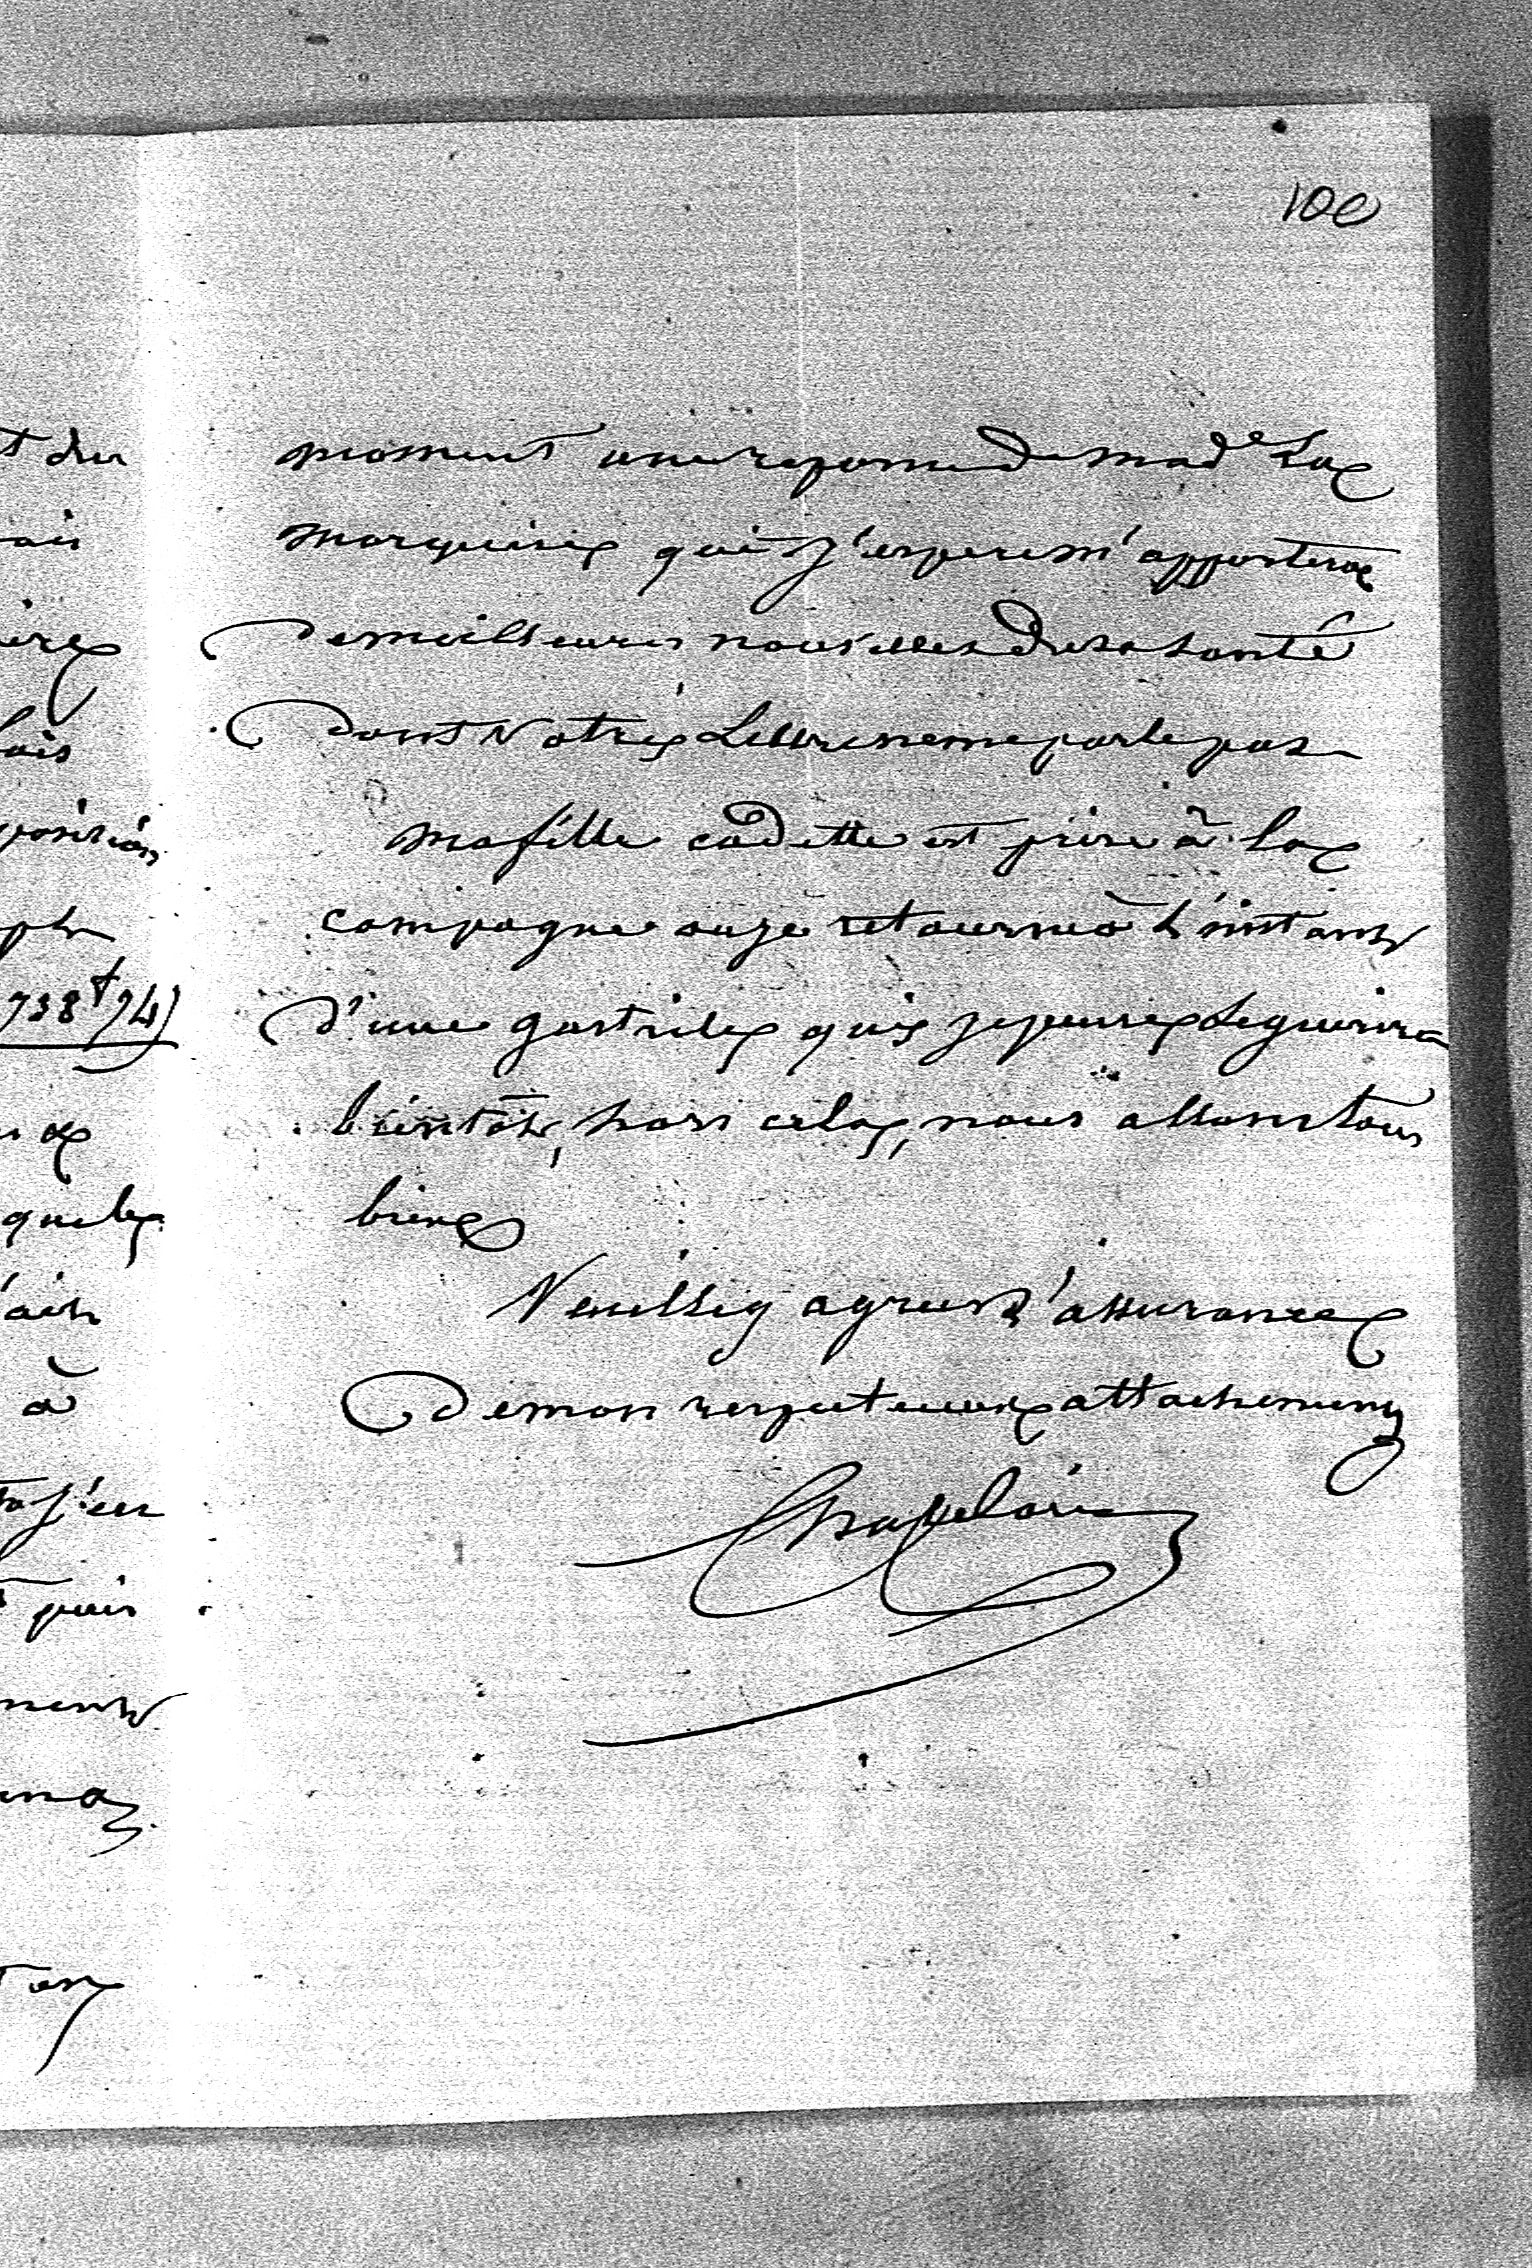 100
moment une reponse de mad.e La
marquise que j'espere m'apportera
de meilleures nouvelles de sa santé
dont Votre Lettre ne me parle pas
ma fille cadette est prise à la
campagne ou je retourne à l'instant
d'une gastrite que je pense se guerira
bientôt, hors cela, nous allons tous
bien
Veuillez agreer l'assurance
de mon respectueux attachement
Chapelain
t du
ais
ire
lais
position
738 74
a
que le
ait
à
j'en
puis
ment